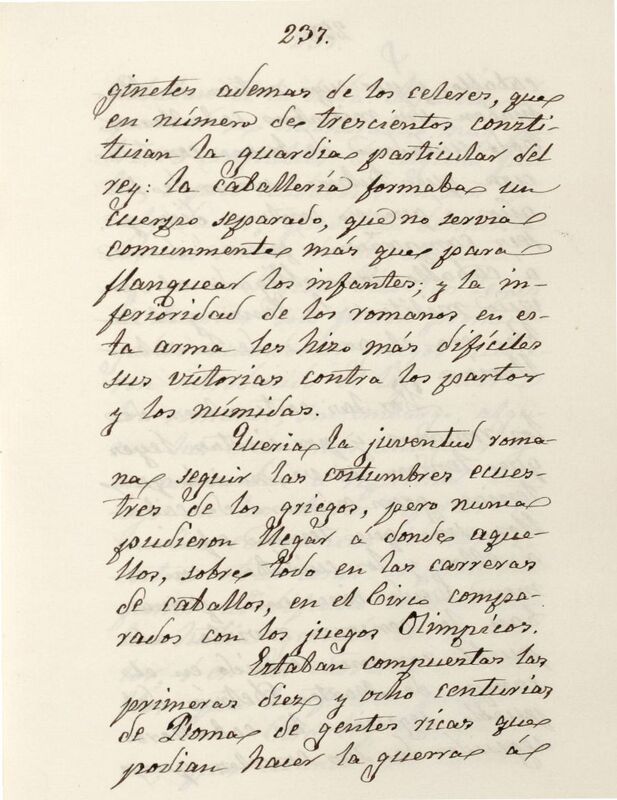 237.
ginetes ademas de los celeres, que
en número de trescientos consti-
tuian la guardia particular del
rey: la caballería formaba un
cuerpo separado, que no servia
comunmente más que para
flanquear los infantes; y la in-
ferioridad de los romanos en es-
ta arma les hizo más difíciles
sus victorias contra los partos
y los númidas.
Queria la juventud roma-
na seguir las costumbres ecues-
tres de los griegos, pero nunca
pudieron llegar á donde aque-
llos, sobre todo en las carreras
de caballos, en el Circo compa-
rados con los juegos Olimpícos.
Estaban compuestas las
primeras diez y ocho centurias
de Roma de gentes ricas que
podian hacer la guerra á